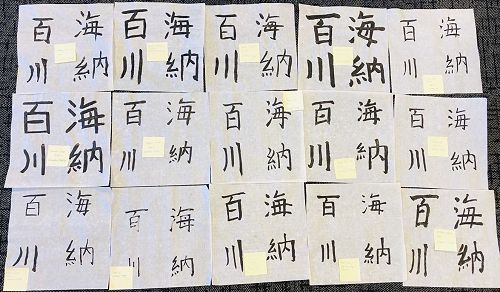 海納
百川
海納
百川
海納
百川
海納
百川
海納
百川
海納
百川
海納
百川
海納
百川
海納
百川
海納
百川
海納
百川
海納
百川
海納
百川
海納
百川
海納
百川